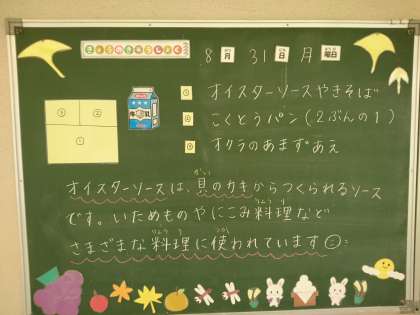 きょうのきゅうしょく
8月31日月曜日
① オイスターソースやきそば
② こくとうパン(2ぶんの1)
③ オクラのあまずあえ
③ ②
①
牛乳
オイスターソースは、貝のカキからつくられるソース
です。いためものやにこみ料理など
さまざまな料理に使われています